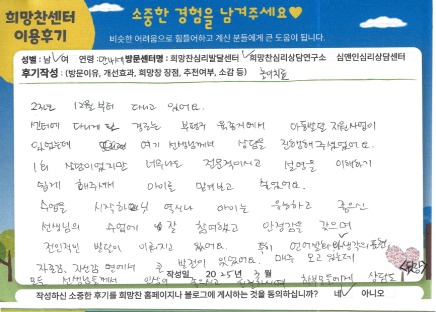 희망찬센터
이용후기
소중한 경험을 남겨주세요♥
비슷한 어려움으로 힘들어하고 계신 분들에게 큰 도움이 됩니다.
성별 : 남/여 연령 : 방문센터명 : 희망찬심리발달센터 희망찬심리상담연구소 심앤인심리상담센터
후기작성 : (방문이유, 개선효과, 희망찬 장점, 추천여부, 소감 등) 놀이치료
2년전 12월부터 다니고 있어요.
센터에 다니게 된 경로는 부평구 육종센터에서 아동발달 지원사업이
있었는데 여기 선생님께서 상담을 진행해주셨었어요.
1회 상담이었지만 너무나도 전문적이시고 설명을 이해하기
쉽게 해주셔서 아이를 맡겨보고 싶었어요.
수업을 시작하고 역시나 아이는 유능하고 좋으신
선생님의 수업에 잘 참여했고 안정감을 갖으며
전인적인 발달이 이루어지고 있어요. 특히 언어발달과 생각의 표현,
자존감, 자신감 면에서 큰 발전이 있었어요. 매주 오고 있는데
모든 선생님들께서
작성일 2025년 3월
상담도
작성하신 소중한 후기를 희망찬 홈페이지나 블로그에 게시하는 것을 동의하십니까? 네 아니오